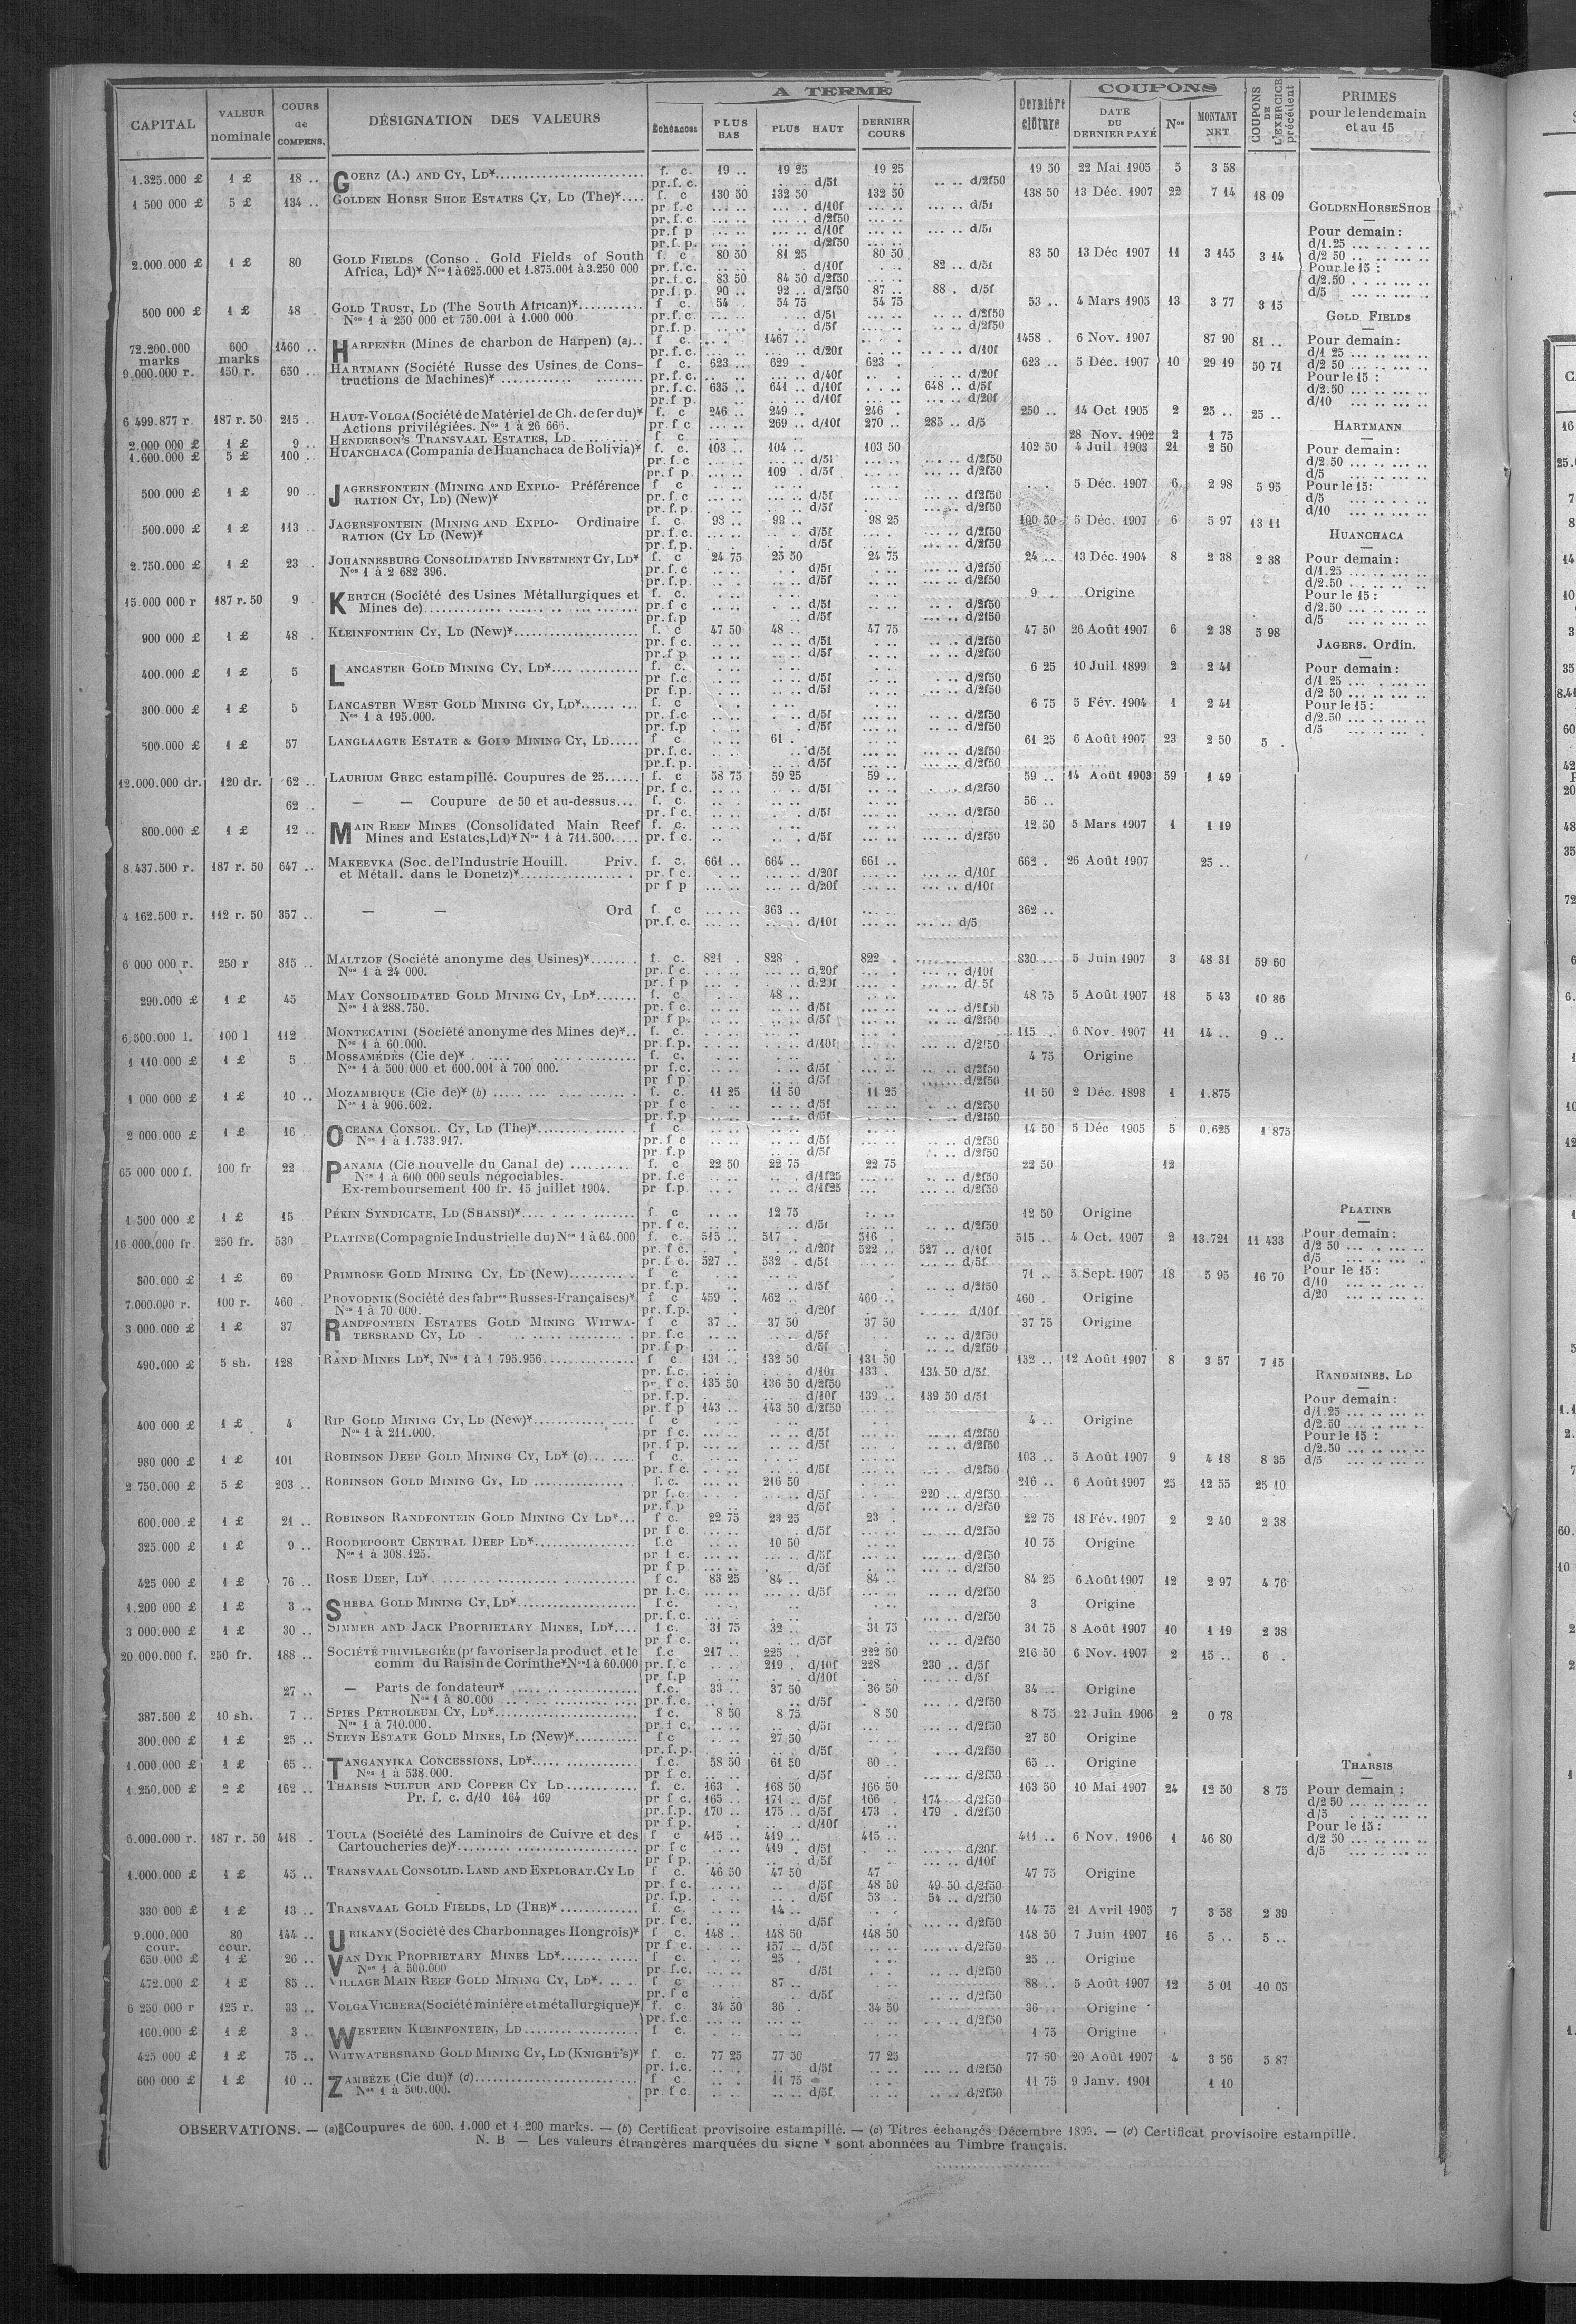 CAPITAL | VALEUR nominale | COURS de COMPENS. | DÉSIGNATION DES VALEURS | A TERME | Échéances | PLUS BAS | PLUS HAUT | DERNIER COURS | Dernière clôture | COUPONS | DATE DU DERNIER PAYÉ | Nos | MONTANT NET | COUPONS DE L'EXERCICE précédent | PRIMES pour le lendemain et au 15
1.325.000 £ 1 £ 18 .. GOERZ (A.) AND CY, LD* f. c. 19 .. 19 25 19 25 19 50 22 Mai 1905 5 3 58
pr. f. c. d/5f d/2f50
1 500 000 £ 5 £ 134 .. GOLDEN HORSE SHOE ESTATES CY, LD (The)* f. c 130 50 132 50 132 50 138 50 13 Déc. 1907 22 7 14 18 09
pr f. c d/10f d/5f
pr. f. c. d/2f50
pr. f p d/10f d/5f
pr. f. p. d/2f50
2.000.000 £ 1 £ 80 GOLD FIELDS (Conso . Gold Fields of South f. c 80 50 81 25 80 50 83 50 13 Déc 1907 11 3 145 3 14
Africa, Ld)* Nos 1 à 625.000 et 1.875.001 à 3.250 000 pr. f. c. d/10f 82 .. d/5f
pr. f. c. 83 50 84 50 d/2f50
pr. f. p. 90 .. 92 .. d/2f50 87 .. 88 . d/5f
500 000 £ 1 £ 48 . GOLD TRUST, LD (The South African)* f c. 54 54 75 54 75 53 .. 4 Mars 1905 13 3 77 3 15
Nos 1 à 250 000 et 750.001 à 1.000 000 pr. f. c. d/5f d/2f50
pr. f. p. d/5f d/2f50
72.200.000 marks 600 marks 1460 .. HARPENER (Mines de charbon de Harpen) (a).. f c. 1467 .. 1458 . 6 Nov. 1907 87 90 81 ..
pr. f. c. d/20f d/10f
9.000.000 r. 150 r. 650 .. HARTMANN (Société Russe des Usines de Cons- f. c. 623 .. 629 . 623 . 623 .. 5 Déc. 1907 10 29 19 50 71
tructions de Machines)* pr. f. c. d/40f d/20f
pr. f. c. 635 641 .. d/10f 648 .. d/5f
pr. f p. d/10f d/20f
6 499.877 r. 187 r. 50 215 .. HAUT-VOLGA (Société de Matériel de Ch. de fer du)* f. c 246 .. 249 .. 246 . 250 .. 14 Oct 1905 2 25 .. 25 ..
Actions privilégiées. Nos 1 à 26 666. pr f c 269 .. d/10f 270 .. 285 .. d/5
2.000 000 £ 1 £ 9 .. HENDERSON'S TRANSVAAL ESTATES, LD. f c. 28 Nov. 1902 2 1 75
1.600.000 £ 5 £ 100 .. HUANCHACA (Compania de Huanchaca de Bolivia)* f. c. 103 .. 104 .. 103 50 102 50 4 Juil 1903 21 2 50
pr. f. c d/5f d/2f50
pr. f p. 109 . d/5f d/2f50
500.000 £ 1 £ 90 .. JAGERSFONTEIN (MINING AND EXPLO- Préférence f c 5 Déc. 1907 6. 2 98 5 95
RATION CY, LD) (New)* pr. f. c d/5f d/2f50
pr. f. p. d/5f d/2f50
500.000 £ 1 £ 113 .. JAGERSFONTEIN (MINING AND EXPLO- Ordinaire f. c. 98 .. 99 .. 98 25 100 50 5 Déc. 1907 6 5 97 13 11
RATION (CY LD (New)* pr. f. c. d/5f d/2f50
pr. f. p. d/5f d/2f50
2.750.000 £ 1 £ 23 . JOHANNESBURG CONSOLIDATED INVESTMENT CY, LD* f. c 24 75 25 50 24 75 24 ... 13 Déc. 1904 8 2 38 2 38
Nos 1 à 2 682 396. pr. f. c d/5f d/2f50
pr. f. p. d/5f d/2f50
15.000 000 r 187 r. 50 9 KERTCH (Société des Usines Métallurgiques et f. c. 9 . Origine
Mines de) pr. f c d/5f d/2f50
pr. f. p d/5f d/2f50
900 000 £ 1 £ 48 . KLEINFONTEIN CY, LD (New)* f. c 47 50 48 .. 47 75 47 50 26 Août 1907 6 2 38 5 98
pr. f c. d/5f d/2f50
pr. f p d/5f d/2f50
400.000 £ 1 £ 5 LANCASTER GOLD MINING CY, LD* f. c. 6 25 10 Juil. 1899 2 2 41
pr f. c. d/5f d/2f50
pr f. p. d/5f d/2f50
300.000 £ 1 £ 5 LANCASTER WEST GOLD MINING CY, LD* f. c 6 75 5 Fév. 1904 1 2 41
Nos 1 à 195.000. pr. f. c d/5f d/2f50
pr. f. p d/5f d/2f50
500.000 £ 1 £ 57 LANGLAAGTE ESTATE & GOLD MINING CY, LD f c 61 . 61 25 6 Août 1907 23 2 50 5 .
pr. f. c. d/5f d/2f50
pr. f. p. d/5f d/2f50
12.000.000 dr. 120 dr. 62 .. LAURIUM GREC estampillé. Coupures de 25 f. c 58 75 59 25 59 .. 59 .. 14 Août 1903 59 1 49
pr. f c. d/5f d/2f50
62 .. — — Coupure de 50 et au-dessus f. c. 56 ..
pr. f c. d/5f d/2f50
800.000 £ 1 £ 12 .. MAIN REEF MINES (Consolidated Main Reef f. c. 12 50 5 Mars 1907 1 1 19
Mines and Estates, Ld)* Nos 1 à 711.500. pr. f c. d/5f d/2f50
8.437.500 r. 187 r. 50 647 .. MAKEEVKA (Soc. de l'Industrie Houill. Priv. f. c. 661 .. 664 .. 661 .. 662 . 26 Août 1907 25 ..
et Métall. dans le Donetz)* pr. f c. d/20f d/10f
pr f p d/20f d/10f
4 162.500 r. 112 r. 50 357 .. — — Ord f. c 363 .. 362 ..
pr. f. c. d/10f d/5
6 000 000 r. 250 r 815 .. MALTZOF (Société anonyme des Usines)* f. c. 821 . 828 . 822 . 830 .. 5 Juin 1907 3 48 31 59 60
Nos 1 à 24 000. pr. f c. d/20f d/10f
pr. f p d/20f d/5f
290.000 £ 1 £ 45 MAY CONSOLIDATED GOLD MINING CY, LD* f. c 48 .. 48 75 5 Août 1907 18 5 43 10 86
Nos 1 à 288.750. pr. f c. d/5f d/2f50
pr f p. d/5f d/2f50
6,500.000 l. 100 l 112 MONTECATINI (Société anonyme des Mines de)* f. c. 115 .. 6 Nov. 1907 11 14 .. 9 ..
Nos 1 à 60.000. pr. f. p. d/10f d/2f50
1 110.000 £ 1 £ 5 MOSSAMÉDÈS (Cie de)* f. c. 4 75 Origine
Nos 1 à 500.000 et 600.001 à 700 000. pr f. c. d/5f d/2f50
pr f p d/5f d/2f50
1 000 000 £ 1 £ 10 .. MOZAMBIQUE (Cie de)* (b) f. c. 11 25 11 50 11 25 11 50 2 Déc. 1898 1 1.875
Nos 1 à 906.602. pr f c d/5f d/2f50
pr. f. p d/5f d/2f50
2 000.000 £ 1 £ 16 OCEANA CONSOL. CY, LD (The)* f c. 14 50 5 Déc 1905 5 0.625 1 875
Nos 1 à 1.733.917. pr. f c d/5f d/2f50
pr f. p d/5f d/2f50
65 000 000 f. 100 fr 22 PANAMA (Cie nouvelle du Canal de) f. c 22 50 22 75 22 75 22 50 12
Nos 1 à 600 000 seuls négociables. pr. f. c d/1f25 d/2f50
Ex-remboursement 100 fr. 15 juillet 1904. pr f. p. d/1f25 d/2f50
1 500 000 £ 1 £ 15 PÉKIN SYNDICATE, LD (SHANSI)* f. c 12 75 12 50 Origine
pr. f c. d/5f d/2f50
16 000.000 fr. 250 fr. 530 PLATINE (Compagnie Industrielle du) Nos 1 à 64.000 f. c. 515 .. 517 . 516 . 515 .. 4 Oct. 1907 2 13.721 11 433
pr. f c. d/20f 522 .. 527 .. d/10f
pr. f c. 527 .. 532 . d/5f d/5f
300.000 £ 1 £ 69 PRIMROSE GOLD MINING CY. LD (New) f c 71 .. 5 Sept. 1907 18 5 95 16 70
pr. f. p. d/5f d/2f50
7.000.000 r. 100 r. 460 . PROVODNIK (Société des fabres Russes-Françaises)* f c 459 . 462 .. 460 .. 460 . Origine
Nos 1 à 70 000. pr. f. p. d/20f d/10f
3 000.000 £ 1 £ 37 RANDFONTEIN ESTATES GOLD MINING WITWA- f c 37 .. 37 50 37 50 37 75 Origine
TERSRAND CY, LD pr. f. c d/5f d/2f50
pr. f p d/5f d/2f50
490.000 £ 5 sh. 128 RAND MINES LD*, Nos 1 à 1 795.956 f c 131 .. 132 50 131 50 132 .. 12 Août 1907 8 3 57 7 15
pr. f. c. d/10f 133 . 134.50 d/5f
pr. f c. 135 50 136 50 d/2f50
pr. f. p. d/10f 139 .. 139 50 d/5f
pr. f p 143 .. 143 50 d/2f50
400 000 £ 1 £ 4 RIP GOLD MINING CY, LD (New)* f c 4 .. Origine
Nos 1 à 211.000. pr f c. d/5f d/2f50
pr. f p. d/5f d/2f50
980 000 £ 1 £ 101 ROBINSON DEEP GOLD MINING CY, LD* (c) f c. 103 .. 5 Août 1907 9 4 18 8 35
pr. f c. d/5f d/2f50
2 750.000 £ 5 £ 203 .. ROBINSON GOLD MINING CY, LD f. c. 216 50 216 .. 6 Août 1907 25 12 55 25 10
pr f. c. d/5f 220 .. d/2f50
pr. f. p d/5f d/2f50
600.000 £ 1 £ 21 .. ROBINSON RANDFONTEIN GOLD MINING CY LD* f c. 22 75 23 25 23 . 22 75 18 Fév. 1907 2 2 40 2 38
pr f c. d/5f d/2f50
325 000 £ 1 £ 9 .. ROODEPOORT CENTRAL DEEP LD* f. c 10 50 10 75 Origine
Nos 1 à 308.125. pr f c. d/5f d/2f50
pr f p d/5f d/2f50
425 000 £ 1 £ 76 .. ROSE DEEP, LD* f c. 83 25 84 .. 84 .. 84 25 6 Août 1907 12 2 97 4 76
pr f. c. d/5f d/2f50
1.200 000 £ 1 £ 3 .. SHEBA GOLD MINING CY, LD* f. c. 3 Origine
pr. f. c. d/2f50
3 000.000 £ 1 £ 30 .. SIMMER AND JACK PROPRIETARY MINES, LD* f c. 31 75 32 .. 31 75 31 75 8 Août 1907 10 1 19 2 38
pr f c. d/5f d/2f50
20.000.000 f. 250 fr. 188 .. SOCIÉTÉ PRIVILEGIÉE (pr favoriser la product. et le f. c 217 .. 225 .. 222 50 216 50 6 Nov. 1907 2 15 .. 6 .
comm du Raisin de Corinthe* Nos 1 à 60.000 pr. f. c 219 . d/10f 228 230 .. d/5f
pr. f. p d/10f d/5f
27 .. — Parts de fondateur* f. c. 33 .. 37 50 36 50 34 .. Origine
Nos 1 à 80.000 pr. f. c. d/5f d/2f50
387.500 £ 10 sh. 7 .. SPIES PETROLEUM CY, LD* f c. 8 50 8 75 8 50 8 75 22 Juin 1906 2 0 78
Nos 1 à 710.000. pr. f c. d/5f d/2f50
300.000 £ 1 £ 25 .. STEYN ESTATE GOLD MINES, LD (New)* f c 27 50 27 50 Origine
pr. f. p. d/5f d/2f50
1.000.000 £ 1 £ 65 .. TANGANYIKA CONCESSIONS, LD* f. c 58 50 61 50 60 .. 65 .. Origine
Nos 1 à 538.000. pr f c. d/5f d/2f50
1 250.000 £ 2 £ 162 .. THARSIS SULFUR AND COPPER CY LD f. c. 163 . 168 50 166 50 163 50 10 Mai 1907 24 12 50 8 75
Pr. f. c. d/10 164 169 pr f c. 165 .. 171 .. d/5f 166 . 174 d/2f50
pr. f. p. 170 .. 175 .. d/5f 173 . 179 . d/2f50
pr. f p. d/10f
6.000.000 r. 187 r. 50 418 . TOULA (Société des Laminoirs de Cuivre et des f c 415 .. 419 .. 415 .. 411 .. 6 Nov. 1906 1 46 80
Cartoucheries de)* pr f c 419 . d/5f d/20f
pr f p. d/5f d/10f
1.000.000 £ 1 £ 45 .. TRANSVAAL CONSOLID. LAND AND EXPLORAT. CY LD f c. 46 50 47 50 47 47 75 Origine
pr. f c. d/5f 48 50 49 50 d/2f50
pr. f. p. d/5f 53 . 54 .. d/2f50
330 000 £ 1 £ 13 .. TRANSVAAL GOLD FIELDS, LD (THE)* f. c. 14 .. 14 75 21 Avril 1905 7 3 58 2 39
pr. f c. d/5f d/2f50
9.000.000 cour. 80 cour. 144 .. URIKANY (Société des Charbonnages Hongrois)* f c. 148 .. 148 50 148 50 148 50 7 Juin 1907 16 5 .. 5 ..
pr f c. 157 .. d/5f d/2f50
650 000 £ 1 £ 26 .. VAN DYK PROPRIETARY MINES LD* f c. 25 . 25 .. Origine
Nos 1 à 500.000 pr. f. c. d/5f d/2f50
472.000 £ 1 £ 85 .. VILLAGE MAIN REEF GOLD MINING CY, LD* f c 87 .. 88 .. 5 Août 1907 12 5 01 10 05
pr f c d/5f d/2f50
6 250 000 r 125 r. 33 .. VOLGA VICHERA (Société minière et métallurgique)* f. c. 34 50 36 . 34 50 36 .. Origine
pr. f. c d/2f50
160.000 £ 1 £ 3 .. WESTERN KLEINFONTEIN, LD f c. 1 75 Origine
425 000 £ 1 £ 75 .. WITWATERSRAND GOLD MINING CY, LD (KNIGHT'S)* f. c. 77 25 77 50 77 25 77 50 20 Août 1907 4 3 56 5 87
pr. f. c. d/5f d/2f50
600 000 £ 1 £ 10 .. ZAMBÈZE (Cie du)* (d) f c 11 75 11 75 9 Janv. 1901 1 10
Nos 1 à 500.000. pr f c. d/5f d/2f50
GOLDEN HORSE SHOE
Pour demain :
d/1.25
d/2 50
Pour le 15 :
d/2.50
d/5
GOLD FIELDS
Pour demain :
d/1 25
d/2 50
Pour le 15 :
d/2.50
d/10
HARTMANN
Pour demain :
d/2.50
d/5
Pour le 15:
d/5
d/10
HUANCHACA
Pour demain :
d/1.25
d/2.50
Pour le 15 :
d/2.50
d/5
JAGERS. Ordin.
Pour demain :
d/1 25
d/2 50
Pour le 15 :
d/2.50
d/5
PLATINE
Pour demain :
d/2 50
d/5
Pour le 15 :
d/10
d/20
RANDMINES, LD
Pour demain :
d/1.25
d/2.50
Pour le 15 :
d/2.50
d/5
THARSIS
Pour demain :
d/2 50
d/5
Pour le 15 :
d/2 50
d/5
OBSERVATIONS. — (a) Coupures de 600, 1.000 et 1.200 marks. — (b) Certificat provisoire estampillé. — (c) Titres échangés Décembre 1895. — (d) Certificat provisoire estampillé.
N. B — Les valeurs étrangères marquées du signe * sont abonnées au Timbre français.